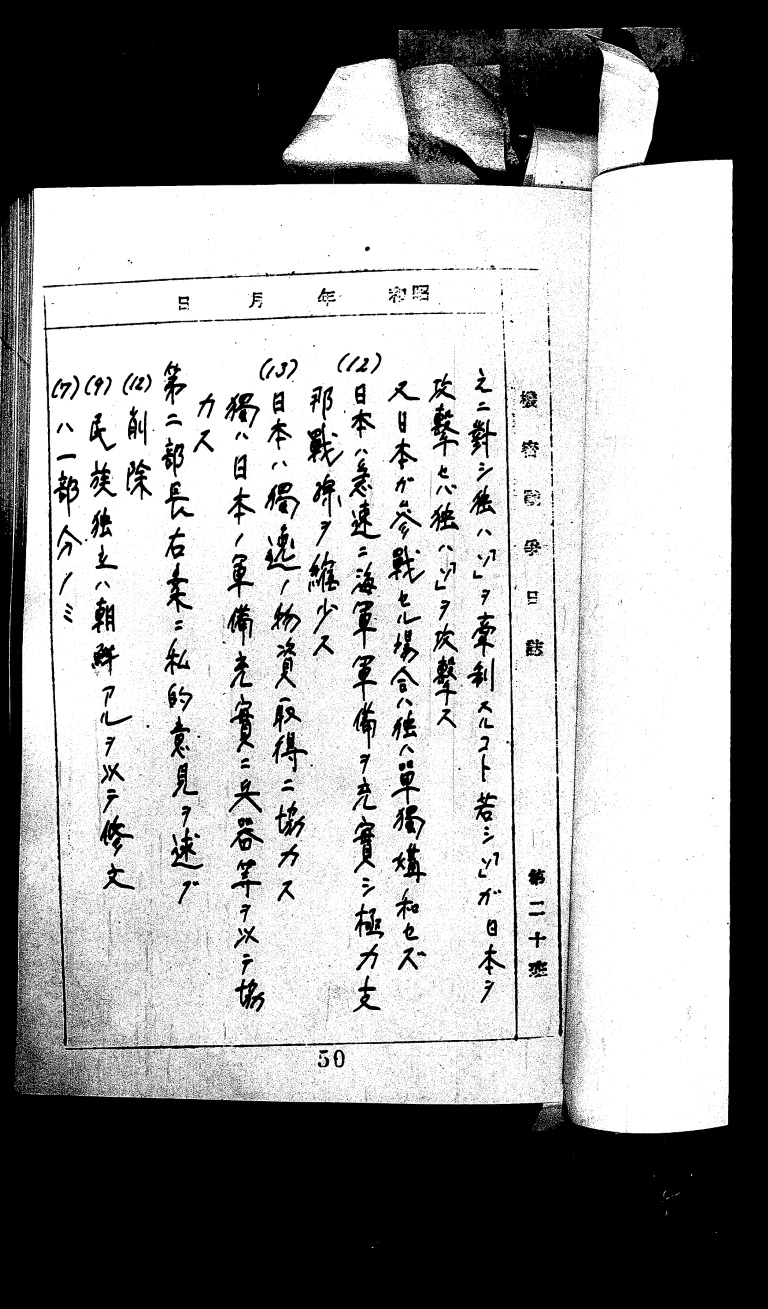 機密戰爭日誌　第二十班
昭和　年　月　日
之ニ對シ独ハ「ソ」ヲ牽制スルコト若シ「ソ」ガ日本ヲ
攻擊セバ独ハ「ソ」ヲ攻擊ス
又日本ガ參戰セル場合ハ独ハ單獨媾和セズ
(12)日本ハ急速ニ海軍軍備ヲ充實シ極力支
那戰線ヲ縮少ス
(13)日本ハ獨逸ノ物資取得ニ協力ス
獨ハ日本ノ軍備充實ニ兵器等ヲ以テ協
力ス
第二部長右案ニ私的意見ヲ述ブ
(12)削除
(9)民族独立ハ朝鮮アルヲ以テ修文
(7)ハ一部分ノミ
50